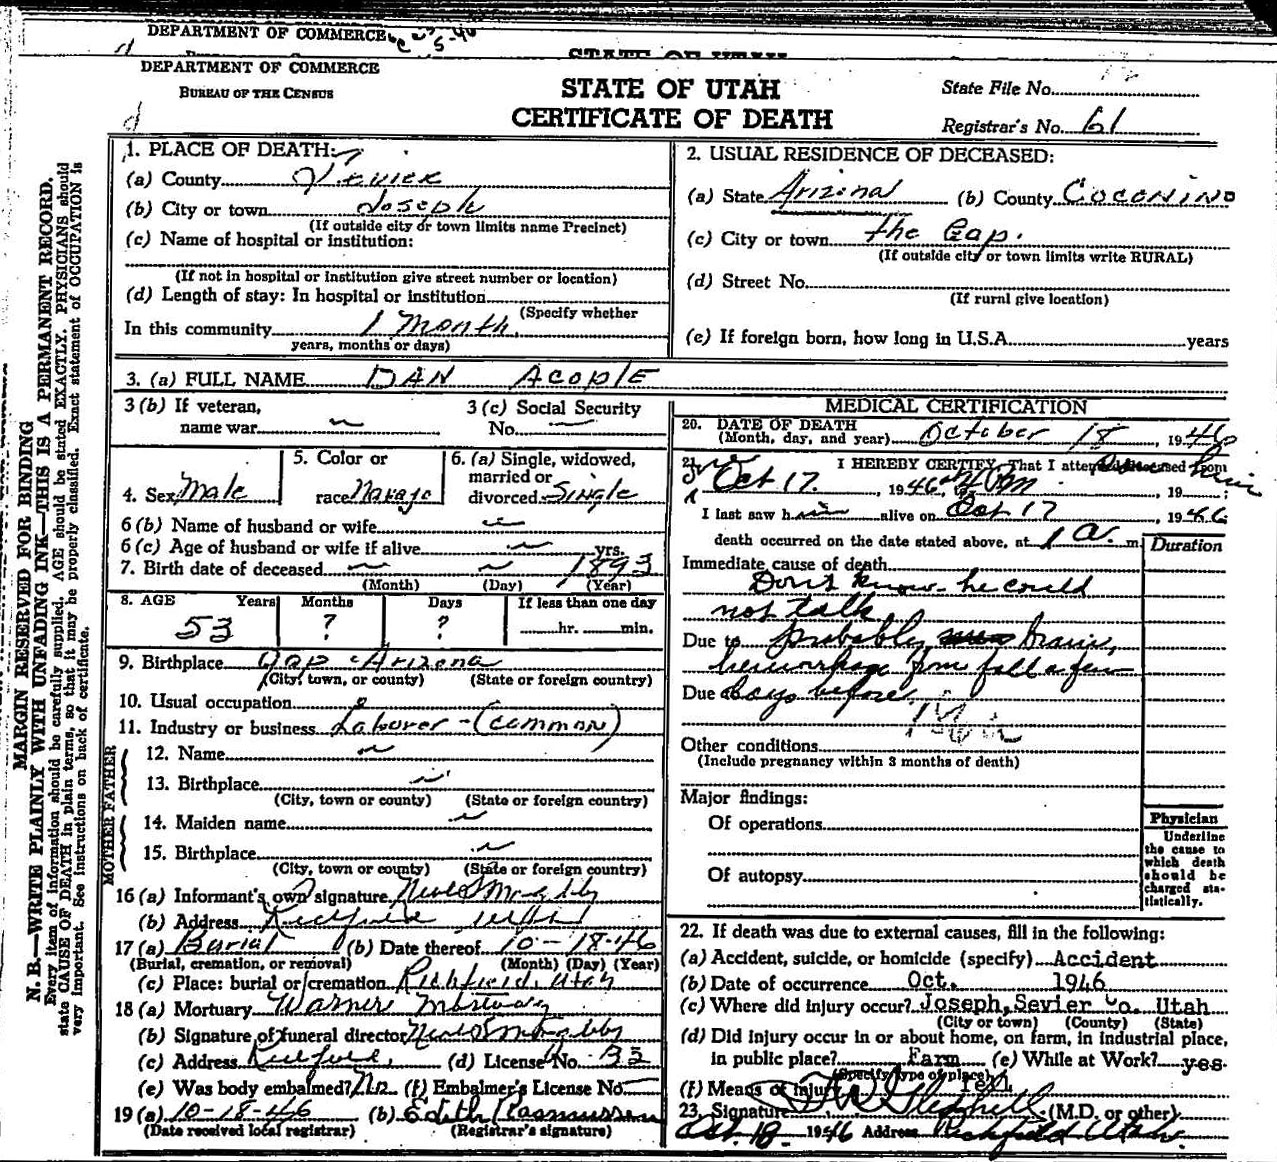 DEPARTMENT OF COMMERCE
STATE OF UTAH
DEPARTMENT OF COMMERCE
BUREAU OF THE CENSUS
STATE OF UTAH
CERTIFICATE OF DEATH
State File No.
Registrar's No. 61
MARGIN RESERVED FOR BINDING
N. B.—WRITE PLAINLY WITH UNFADING INK—THIS IS A PERMANENT RECORD.
Every item of information should be carefully supplied. AGE should be stated EXACTLY. PHYSICIANS should
state CAUSE OF DEATH in plain terms, so that it may be properly classified. Exact statement of OCCUPATION is
very important. See instructions on back of certificate.
1. PLACE OF DEATH:
(a) County
(b) City or town Joseph
(If outside city or town limits name Precinct)
(c) Name of hospital or institution:
(If not in hospital or institution give street number or location)
(d) Length of stay: In hospital or institution
(Specify whether
In this community 1 Month
years, months or days)
2. USUAL RESIDENCE OF DECEASED:
(a) State Arizona (b) County Coconino
(c) City or town the Gap.
(If outside city or town limits write RURAL)
(d) Street No.
(If rural give location)
(e) If foreign born, how long in U.S.A. years
3. (a) FULL NAME DAN ACOPIE
3 (b) If veteran, name war
3 (c) Social Security No.
4. Sex Male
5. Color or race Navajo
6. (a) Single, widowed, married or divorced Single
6 (b) Name of husband or wife
6 (c) Age of husband or wife if alive yrs.
7. Birth date of deceased 1893
(Month) (Day) (Year)
8. AGE Years Months Days If less than one day
53 ? ? hr. min.
9. Birthplace Gap Arizona
(City, town, or county) (State or foreign country)
10. Usual occupation
11. Industry or business Laborer - (common)
FATHER
12. Name
13. Birthplace
(City, town or county) (State or foreign country)
MOTHER
14. Maiden name
15. Birthplace
(City, town or county) (State or foreign country)
16 (a) Informant's own signature
(b) Address Richfield Utah
17 (a) Burial (b) Date thereof 10-18-46
(Burial, cremation, or removal) (Month) (Day) (Year)
(c) Place: burial or cremation Richfield, Utah
18 (a) Mortuary Warner Mortuary
(b) Signature of funeral director
(c) Address Richfield, (d) License No. 33
(e) Was body embalmed? No (f) Embalmer's License No.
19 (a) 10-18-46 (b) Edith Rasmussen
(Date received local registrar) (Registrar's signature)
MEDICAL CERTIFICATION
20. DATE OF DEATH
(Month, day, and year) October 18, 1946
21. I HEREBY CERTIFY, That I attended deceased from
Oct 17, 1946, 19 ;
I last saw him alive on Oct 17, 1946
death occurred on the date stated above, at 1 a. m.
Duration
Immediate cause of death
Don't know - he could
not talk
Due to probably brain
hemorrhage from fall a few
Due to days before
Other conditions
(Include pregnancy within 3 months of death)
Major findings:
Of operations
Of autopsy
Physician
Underline
the cause to
which death
should be
charged sta-
tistically.
22. If death was due to external causes, fill in the following:
(a) Accident, suicide, or homicide (specify) Accident
(b) Date of occurrence Oct. 1946
(c) Where did injury occur? Joseph, Sevier Co. Utah
(City or town) (County) (State)
(d) Did injury occur in or about home, on farm, in industrial place,
in public place? Farm (e) While at Work? yes
(Specify type of place)
(f) Means of injury Fell
23. Signature (M.D. or other)
Oct. 18, 1946 Address Richfield Utah.